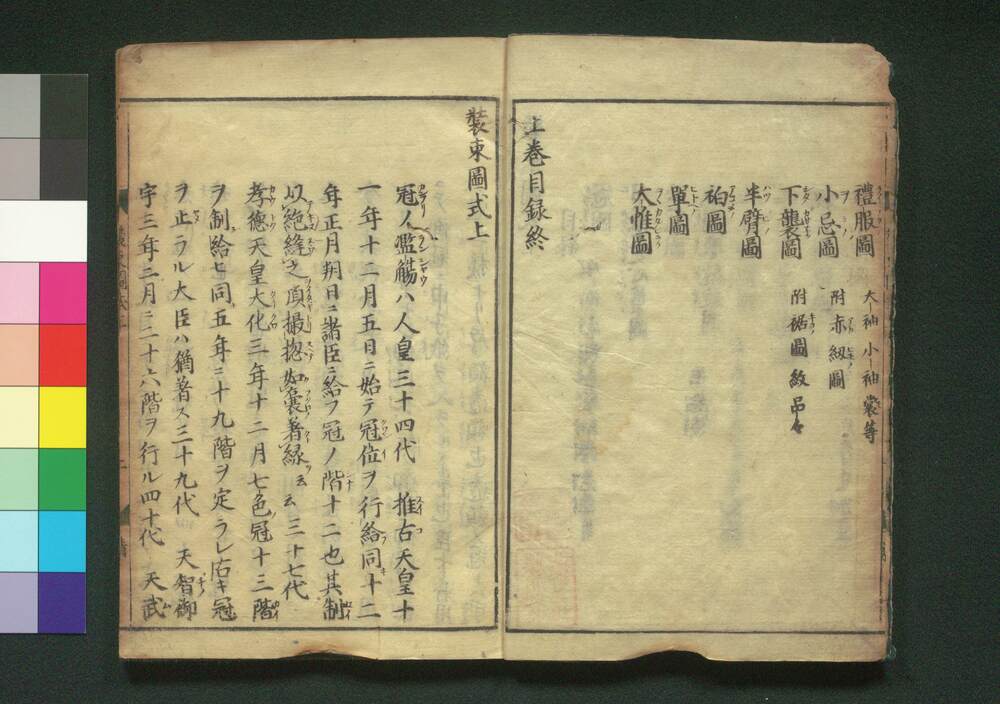 禮服圖 大ー袖 小ー袖 裳等
小忌圖 附赤紐圖
下襲圖 附裾圖紋品々
半臂圖
袙圖
單圖
大帷圖
上巻目録終
装束圖式上
冠ノ濫觴ハ人皇三十四代 推古天皇十
一年十二月五日ニ始テ冠位ヲ行給同十二
年正月朔日ニ諸臣ニ給フ冠ノ階十二也其制
以絁縫之頂撮揔如嚢著緑云云三十七代
孝徳天皇大化三年十二月七色冠十三階
ヲ制給ヒ同五年ニ十九階ヲ定ラレ古キ冠
ヲ止ラル大臣ハ猶著ス三十九代 天智御
宇三年二月ニ二十六階ヲ行ル四十代 天武